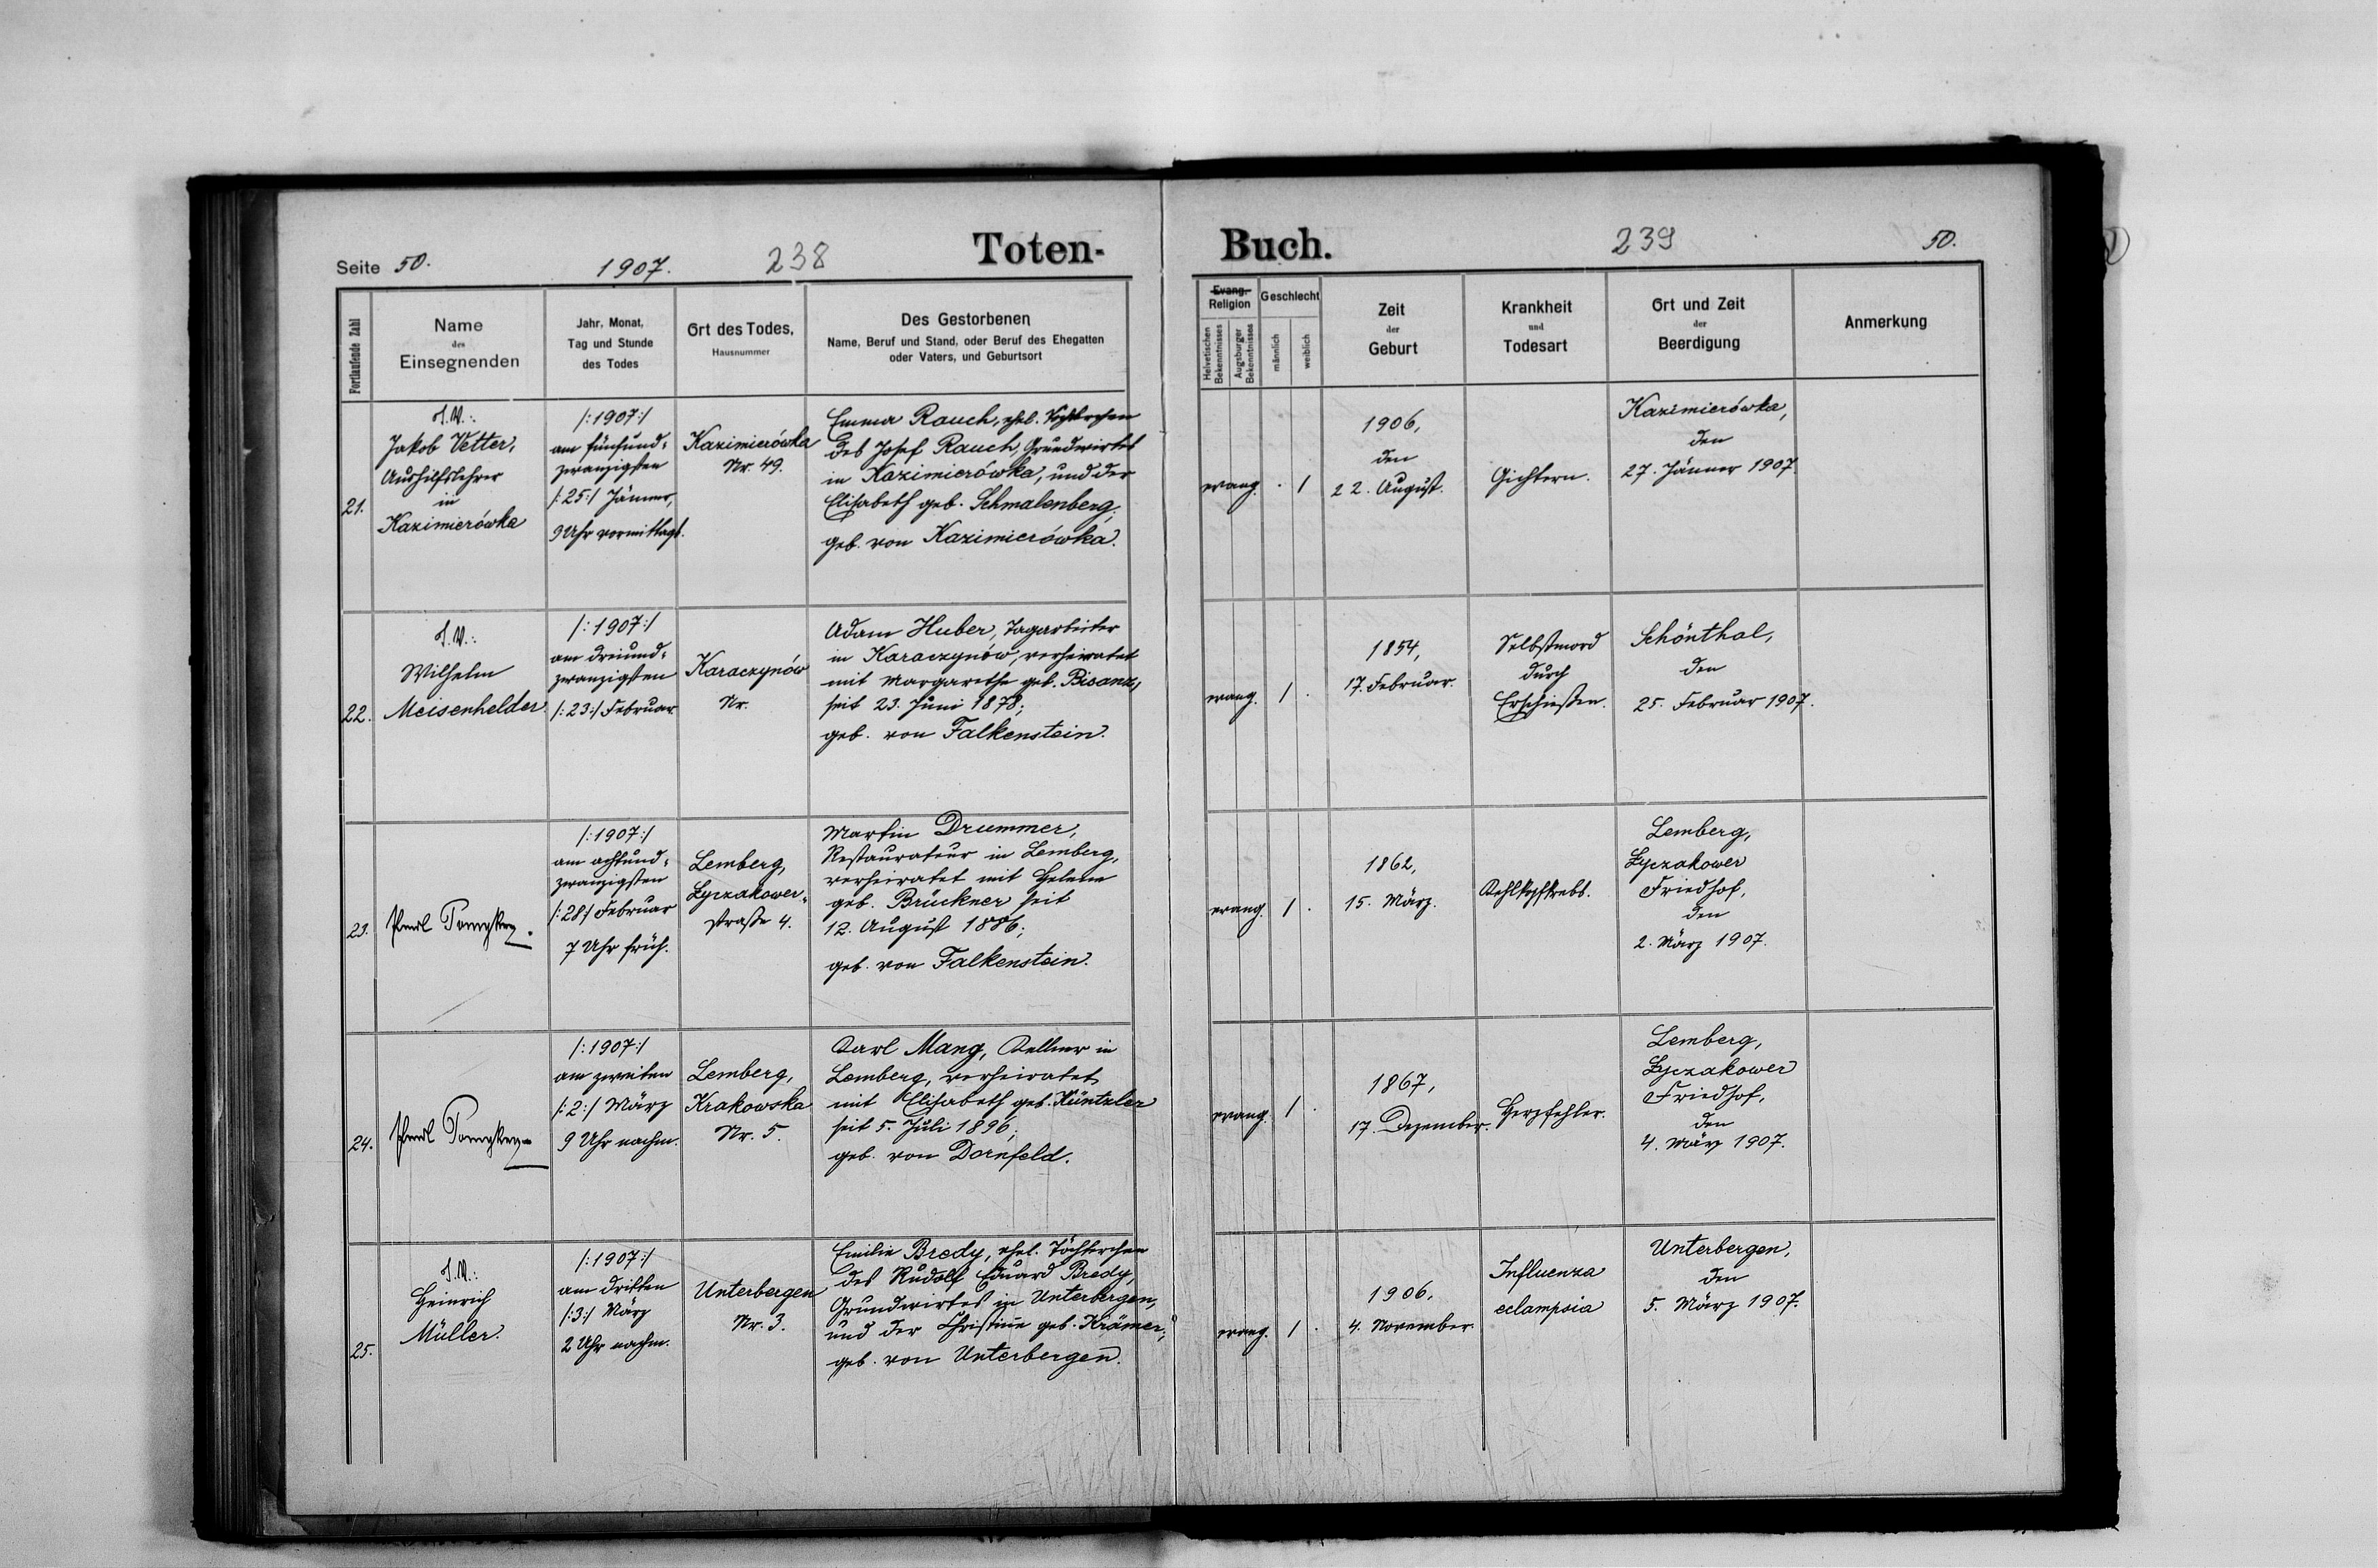 Seite 50.
1907.
238
Toten-
Buch.
239
50.
Fortlaufende Zahl
Name
des
Einsegnenden
Jahr, Monat,
Tag und Stunde
des Todes
Ort des Todes,
Hausnummer
Des Gestorbenen
Name, Beruf und Stand, oder Beruf des Ehegatten
oder Vaters, und Geburtsort
Evang.
Religion
Helvetischen
Bekenntnisses
Augsburger
Bekenntnisses
Geschlecht
männlich
weiblich
Zeit
der
Geburt
Krankheit
und
Todesart
Ort und Zeit
der
Beerdigung
Anmerkung
21.
I.V.:
Jakob Vetter,
Aushilfslehrer
in
Kazimierówka
/:1907:/
am fünfund-
zwanzigsten
/:25:/ Jänner,
9 Uhr vormittags.
Kazimierówka
Nr. 49.
Emma Rauch, ehl. Töchterchen
des Josef Rauch, Grundwirtes
in Kazimierówka, und der
Elisabeth geb. Schmalenberg;
geb. von Kazimierówka.
evang. . 1
1906,
den
22. August.
Gichtern.
Kazimierówka,
den
27. Jänner 1907.
22.
I.V.:
Wilhelm
Meisenhelder.
/:1907:/
am dreiund-
zwanzigsten
/:23:/ Februar.
Karaczynów
Nr.
Adam Huber, Tagarbeiter
in Karaczynów, verheiratet
mit Margarethe geb. Bisanz,
seit 23. Juni 1878;
geb. von Falkenstein.
evang. 1 .
1854,
17. Februar.
Selbstmord
durch
Erschießen.
Schönthal,
den
25. Februar 1907.
23.
/:1907:/
am achtund-
zwanzigsten
/:28:/ Februar
7 Uhr früh.
Lemberg,
Łyczakower-
straße 4.
Martin Drummer,
Restaurateur in Lemberg,
verheiratet mit Helene
geb. Brückner seit
12. August 1886;
geb. von Falkenstein.
evang. 1 .
1862,
15. März.
Kehlkopfkrebs.
Lemberg,
Łyczakower
Friedhof,
den
2. März 1907.
24.
/:1907:/
am zweiten
/:2:/ März
9 Uhr nachm.
Lemberg,
Krakowska
Nr. 5.
Karl Mang, Kellner in
Lemberg, verheiratet
mit Elisabeth geb. Küntzler
seit 5. Juli 1896;
geb. von Dornfeld.
evang. 1 .
1867,
17. Dezember.
Herzfehler.
Lemberg,
Łyczakower
Friedhof,
den
4. März 1907.
25.
I.V.:
Heinrich
Müller.
/:1907:/
am dritten
/:3:/ März
2 Uhr nachm.
Unterbergen
Nr. 3.
Emilie Bredy, ehel. Töchterchen
des Rudolf Eduard Bredy,
Grundwirtes in Unterbergen,
und der Christine geb. Krämer;
geb. von Unterbergen.
evang. 1 .
1906.
4. November.
Influenza
eclampsia
Unterbergen,
den
5. März 1907.